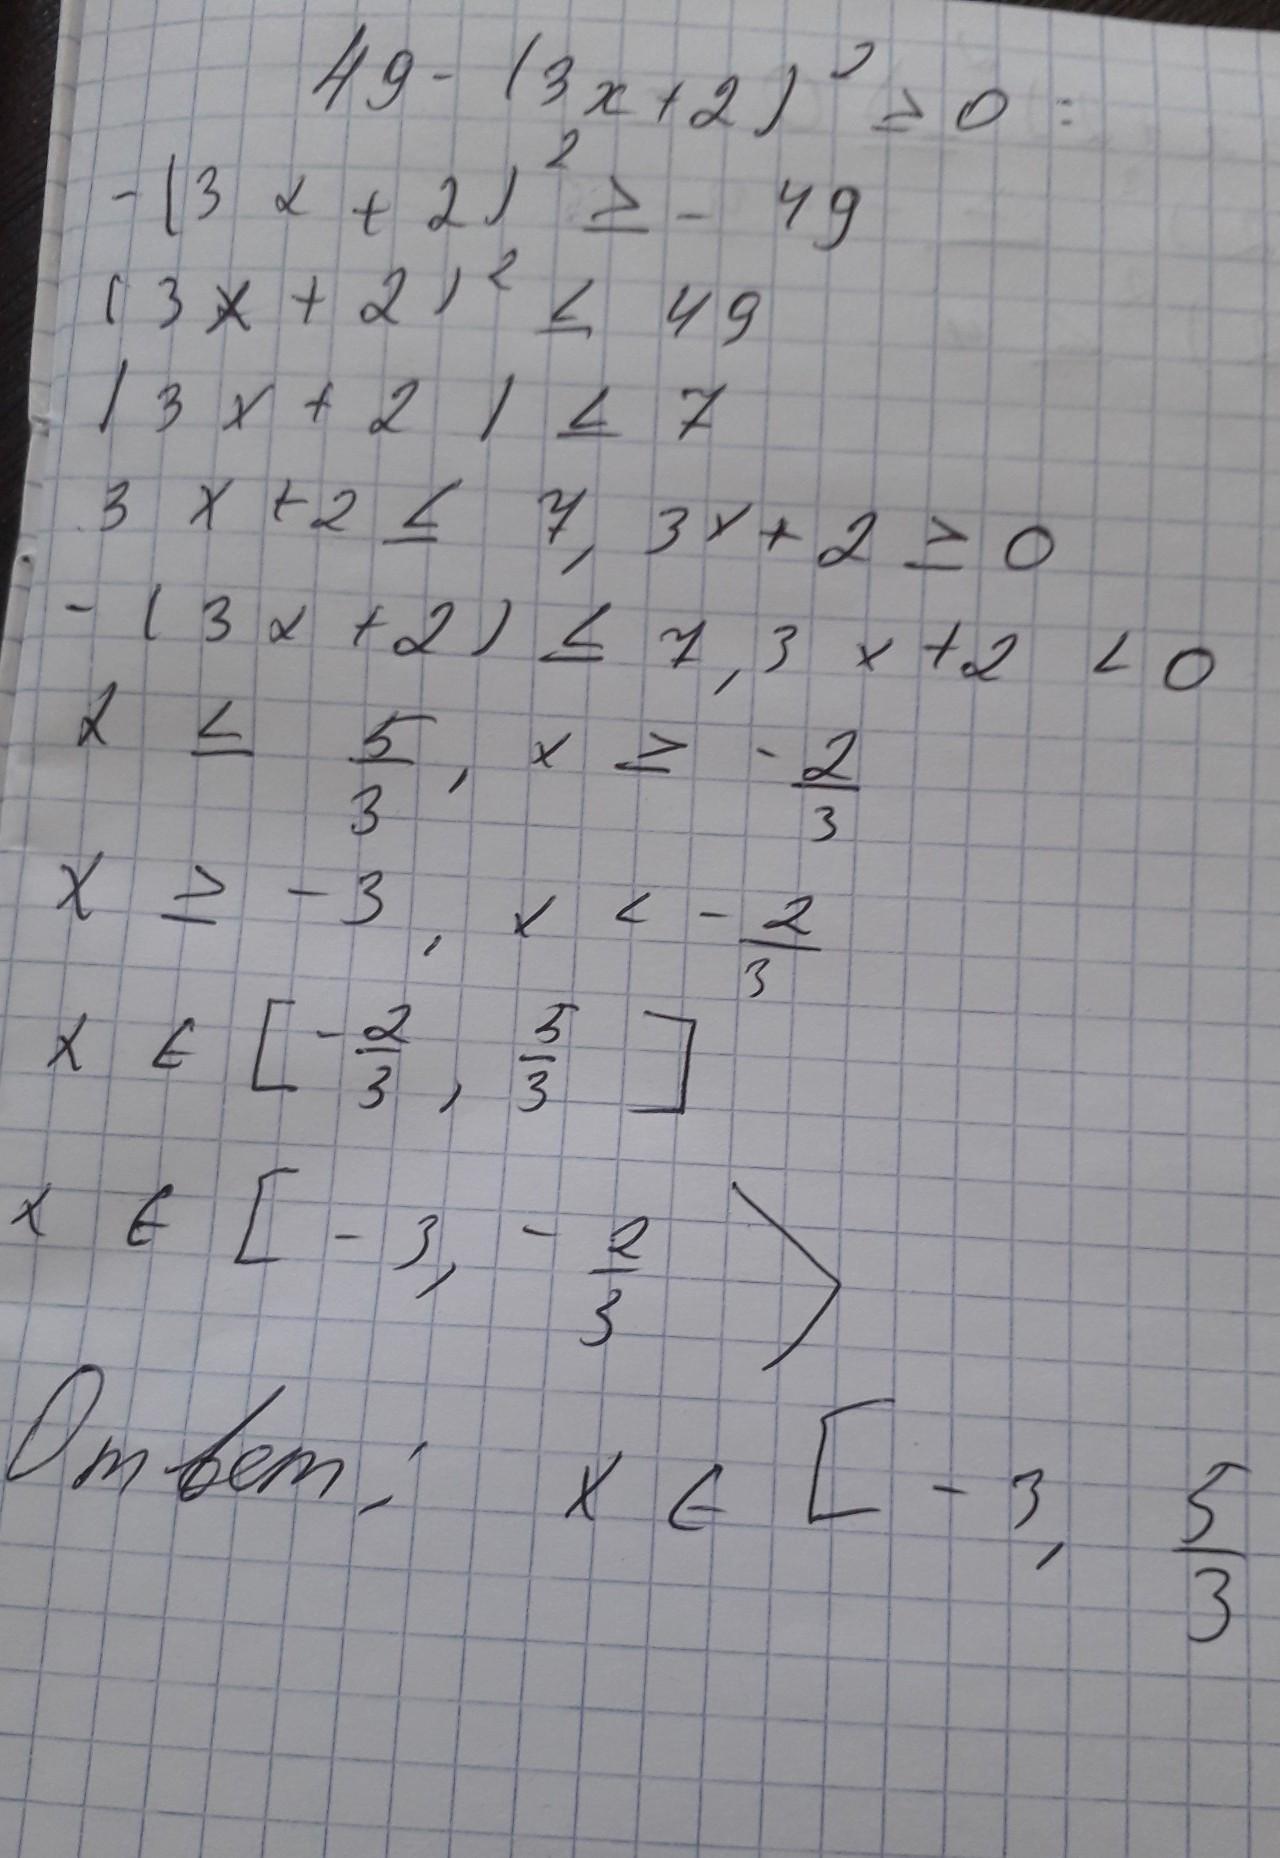 49 - (3x+2)² ≥ 0 :
-(3x + 2)² ≥ - 49
(3x + 2)² ≤ 49
|3x + 2| ≤ 7
3x+2 ≤ 7, 3x+2 ≥ 0
-(3x+2) ≤ 7, 3x+2 < 0
x ≤ 5/3, x ≥ -2/3
x ≥ -3, x < -2/3
x ∈ [-2/3, 5/3]
x ∈ [-3, -2/3 >
Ответ: x ∈ [-3, 5/3